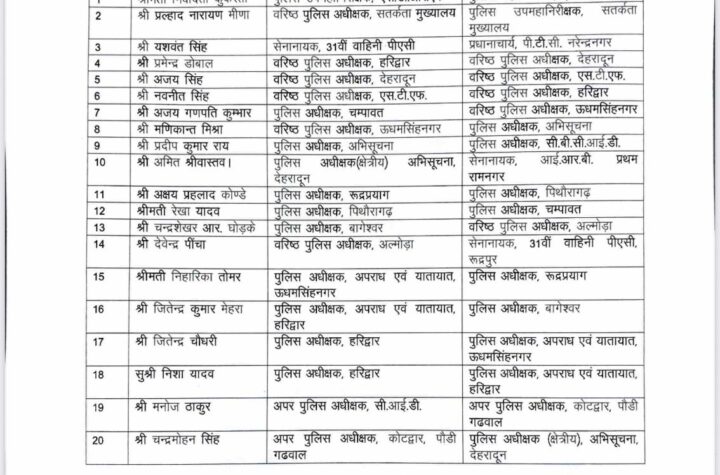 2 श्री प्रल्हाद नारायण मीणा वरिष्ठ पुलिस अधीक्षक, सतर्कता मुख्यालय पुलिस उपमहानिरीक्षक, सतर्कता
मुख्यालय
3 श्री यशवंत सिंह सेनानायक, 31वीं वाहिनी पीएसी प्रधानाचार्य, पी.टी.सी. नरेन्द्रनगर
4 श्री प्रमेन्द्र डोबाल वरिष्ठ पुलिस अधीक्षक, हरिद्वार वरिष्ठ पुलिस अधीक्षक, देहरादून
5 श्री अजय सिंह वरिष्ठ पुलिस अधीक्षक, देहरादून वरिष्ठ पुलिस अधीक्षक, एस.टी.एफ.
6 श्री नवनीत सिंह वरिष्ठ पुलिस अधीक्षक, एस.टी.एफ. वरिष्ठ पुलिस अधीक्षक, हरिद्वार
7 श्री अजय गणपति कुम्भार पुलिस अधीक्षक, चम्पावत वरिष्ठ पुलिस अधीक्षक, ऊधमसिंहनगर
8 श्री मणिकान्त मिश्रा वरिष्ठ पुलिस अधीक्षक, ऊधमसिंहनगर पुलिस अधीक्षक, अभिसूचना
9 श्री प्रदीप कुमार राय पुलिस अधीक्षक, अभिसूचना पुलिस अधीक्षक, सी.बी.सी.आई.डी.
10 श्री अमित श्रीवास्तव। पुलिस अधीक्षक(क्षेत्रीय) अभिसूचना, सेनानायक, आई.आर.बी. प्रथम
देहरादून रामनगर
11 श्री अक्षय प्रहलाद कोण्डे पुलिस अधीक्षक, रूद्रप्रयाग पुलिस अधीक्षक, पिथौरागढ़
12 श्रीमती रेखा यादव पुलिस अधीक्षक, पिथौरागढ़ पुलिस अधीक्षक, चम्पावत
13 श्री चन्द्रशेखर आर. घोड़के पुलिस अधीक्षक, बागेश्वर वरिष्ठ पुलिस अधीक्षक, अल्मोड़ा
14 श्री देवेन्द्र पींचा वरिष्ठ पुलिस अधीक्षक, अल्मोड़ा सेनानायक, 31वीं वाहिनी पीएसी,
रूद्रपुर
15 श्रीमती निहारिका तोमर पुलिस अधीक्षक, अपराध एवं यातायात, पुलिस अधीक्षक, रूद्रप्रयाग
ऊधमसिंहनगर
16 श्री जितेन्द्र कुमार मेहरा पुलिस अधीक्षक, अपराध एवं यातायात, पुलिस अधीक्षक, बागेश्वर
हरिद्वार
17 श्री जितेन्द्र चौधरी पुलिस अधीक्षक, हरिद्वार पुलिस अधीक्षक, अपराध एवं यातायात,
ऊधमसिंहनगर
18 सुश्री निशा यादव पुलिस अधीक्षक, हरिद्वार पुलिस अधीक्षक, अपराध एवं यातायात,
हरिद्वार
19 श्री मनोज ठाकुर अपर पुलिस अधीक्षक, सी.आई.डी. अपर पुलिस अधीक्षक, कोटद्वार, पौडी
गढवाल
20 श्री चन्द्रमोहन सिंह अपर पुलिस अधीक्षक, कोटद्वार, पौडी पुलिस अधीक्षक (क्षेत्रीय), अभिसूचना,
गढवाल देहरादून